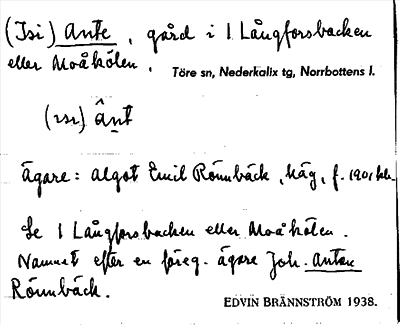 (Isi) Ante, gård i 1 Långforsbacken
eller Moåhölen.
Töre sn, Nederkalix tg, Norrbottens l.
ânt
Ägare: Algot Emil Rönnbäck, häg, f. 1901
Se 1 Långforsbacken eller Moåhölen.
Namnet efter en föreg. ägare Joh. Anton
Rönnbäck.
EDVIN BRÄNNSTRÖM 1938.